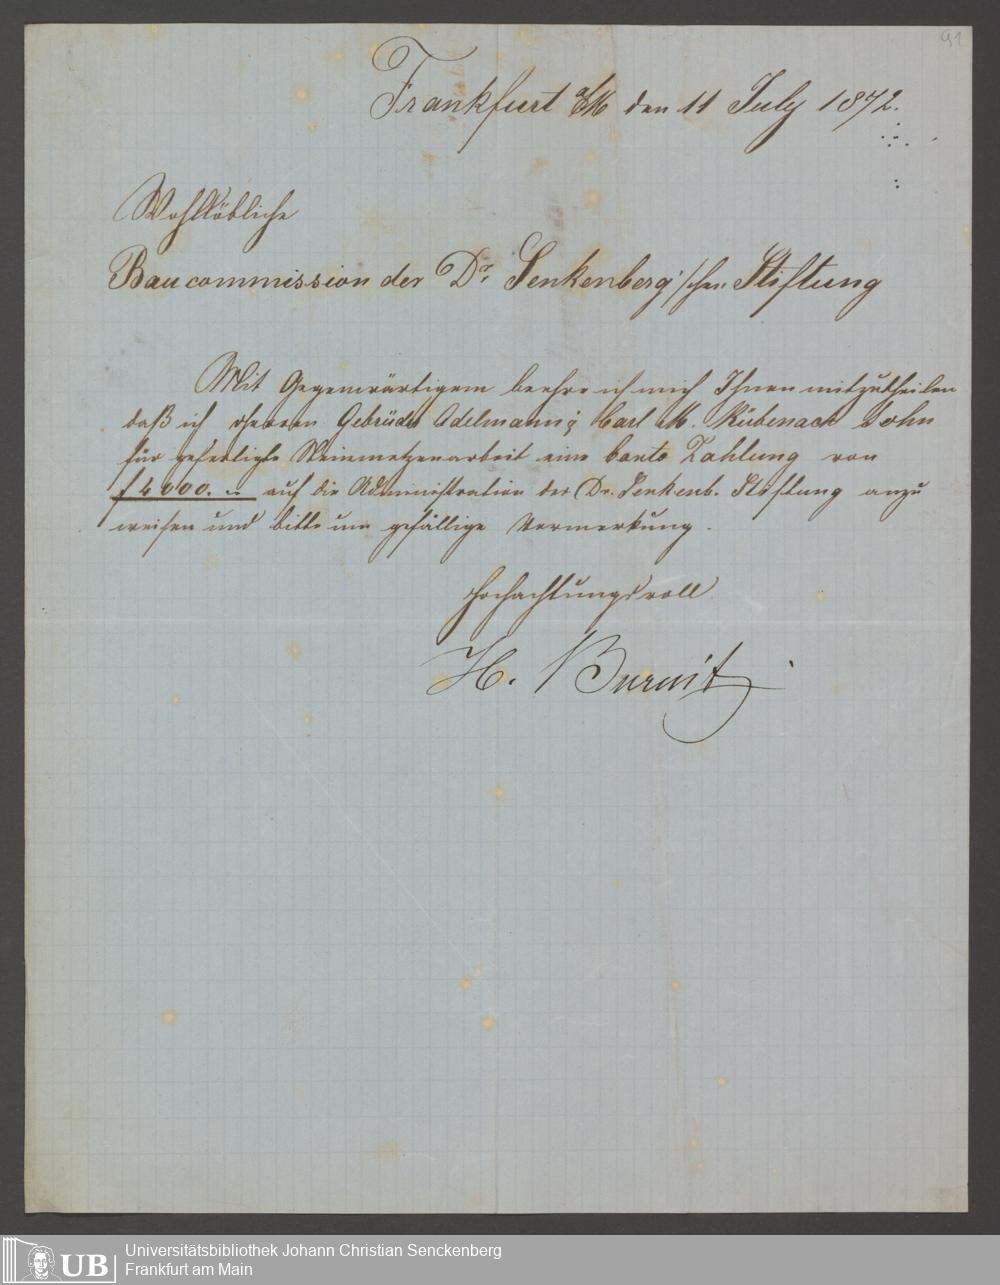 91
Frankfurt a/M den 11 July 1872.
Wohllöbliche
Baucommission der Dr. Senkenberg'schen Stiftung
Mit Gegenwärtigem beehre ich mich Ihnen mitzutheilen
daß ich Herren Gebrüder Adelmann & Carl M. Rübenach Sohn
für gefertigte Steinmetzenarbeit eine Conto Zahlung von
f 4000. " auf die Administration der Dr. Senkenb. Stiftung anzu
weisen und bitte um gefällige Vormerkung.
Hochachtungsvoll
H. Burnitz
UB
Universitätsbibliothek Johann Christian Senckenberg
Frankfurt am Main